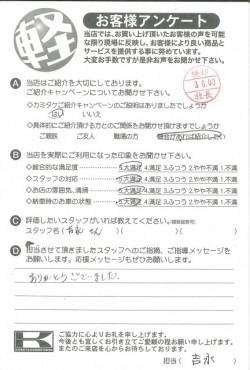 軽
お客様アンケート
当店では、お買い上げ頂いたお客様の声を可能
な限り現場に反映し、お客様により良い商品と
サービスを提供する事に努めています。
大変お手数ですが是非お声をお聞かせ下さい。
A 当店はご紹介を大切にしております。
ご紹介キャンペーンについてお聞かせ下さい。
社長
◇カミタケご紹介キャンペーンのご説明はありましたでしょうか
はい いいえ
◇具体的にご紹介頂ける方とのご関係をお聞かせ頂けますでしょうか
ご親族 ご友人 職場の方 機会があれば紹介したい
B 当店を実際にご利用になった印象をお聞かせ下さい。
◇総合的な満足度 5.大満足 4.満足 3.ふつう 2.やや不満 1.不満
◇スタッフの対応 5.大満足 4.満足 3.ふつう 2.やや不満 1.不満
◇お店の雰囲気、清掃 5.大満足 4.満足 3.ふつう 2.やや不満 1.不満
◇納車時のお車の状態 5.大満足 4.満足 3.ふつう 2.やや不満 1.不満
C 評価したいスタッフがいれば教えてください。
スタッフ名 ( 吉永 さん )
D 担当させて頂きましたスタッフへのご指摘、ご指導メッセージを
お願いします。応援メッセージもぜひお願いします。
ありがとうございました。
K
ご協力に心よりお礼を申し上げます。
今後とも宜しくお引き立てご愛顧の程お願い申し上げます。
またのご来店を心からお待ちしております。
担当 ( 吉永 )